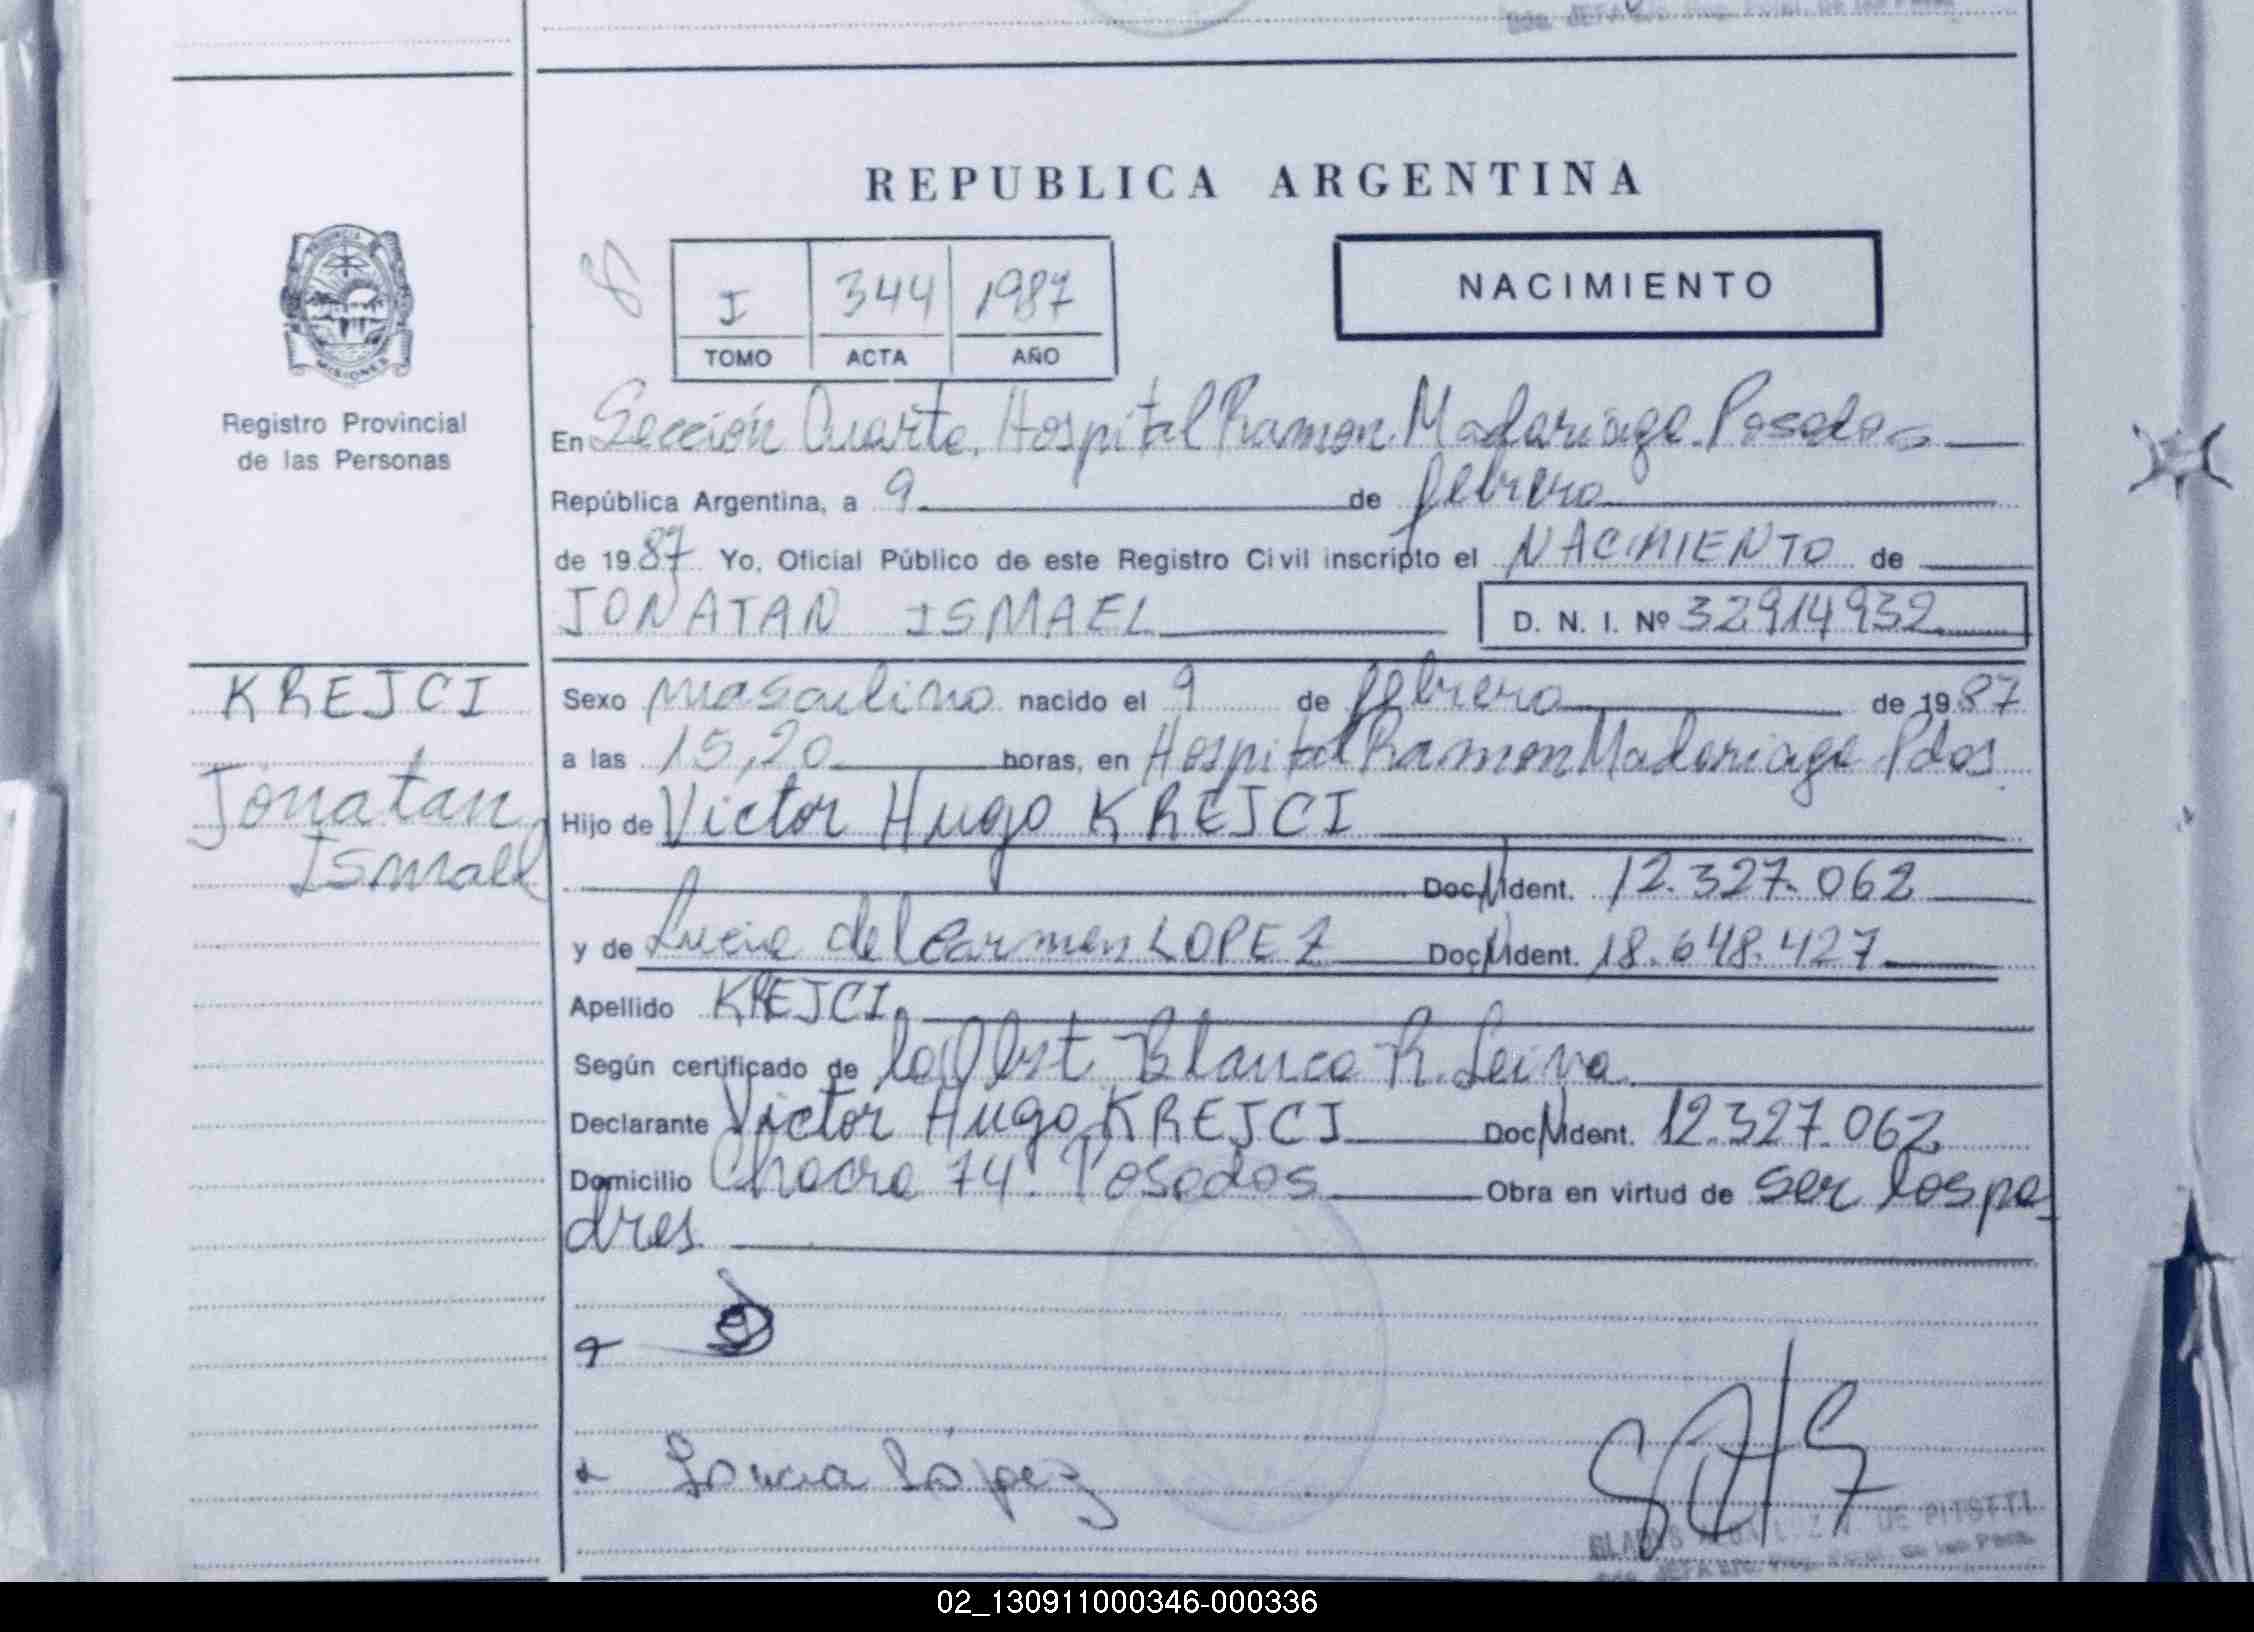 REPUBLICA ARGENTINA
8
I 344 1987
TOMO ACTA AÑO
NACIMIENTO
PROVINCIA
MISIONES
Registro Provincial
de las Personas
En Sección Cuarta, Hospital Ramon Madariaga. Posadas
República Argentina, a 9 de febrero
de 1987 Yo, Oficial Público de este Registro Civil inscripto el NACIMIENTO de
JONATAN ISMAEL D. N. I. Nº 32914932
KREJCI
Jonatan
Ismael
Sexo masculino nacido el 9 de febrero de 1987
a las 15,20 horas, en Hospital Ramon Madariaga Pdas.
Hijo de Victor Hugo KREJCI
Doc. N. Ident. 12.327.062
y de Lucia del Carmen LOPEZ Doc. N. Ident. 18.648.427
Apellido KREJCI
Según certificado de la Obst. Blanca R. Leiva.
Declarante Victor Hugo KREJCI Doc. N. Ident. 12.327.062
Domicilio Chacra 74. Posadas Obra en virtud de ser los pa-
dres
Lucia López
GLADYS DE PITSTTI
02_130911000346-000336